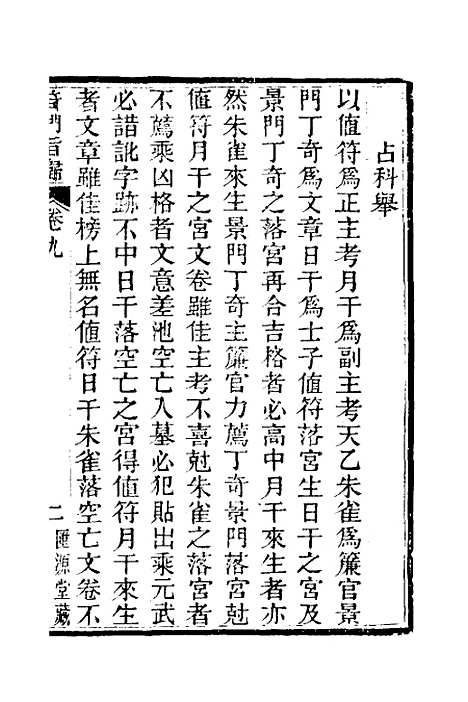 占科舉
以値符爲正主考月干爲副主考天乙朱雀爲簾官景
門丁奇爲文章日干爲士子値符落宮生日干之宮及
景門丁奇之落宮再合吉格者必高中月干來生者亦
然朱雀來生景門丁奇主簾官力薦丁奇景門落宮尅
値符月干之宮文卷雖佳主考不喜尅朱雀之落宮者
不薦乘凶格者文意差池空亡入墓必犯貼出乘元武
必諎訛字跡不中日干落空亡之宮得値符月干來生
者文章雖佳榜上無名値符日干朱雀落空亡文卷不
奇門旨歸
卷九
二
匯源堂藏